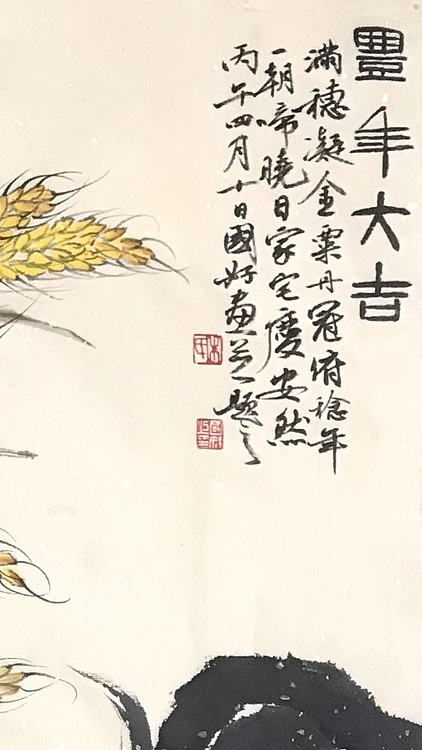 豐年大吉
滿穗凝金粟丹冠俯稔年
一朝啼曉日家宅慶安然
丙午四月十日國好畫並題之